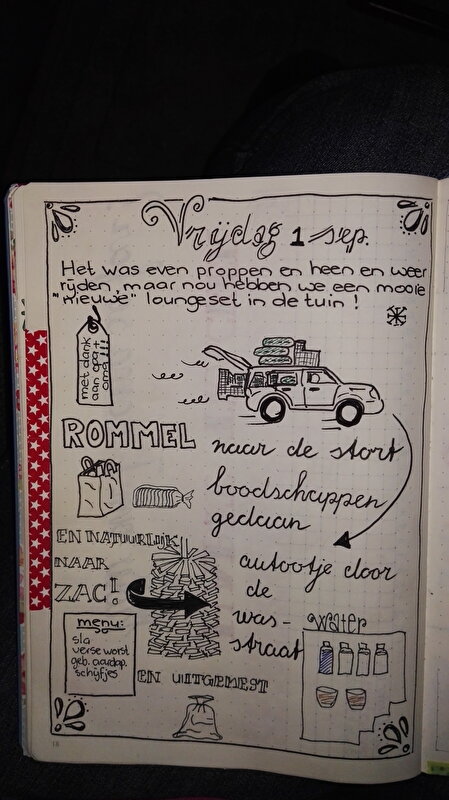 Vrijdag 1 sep.
Het was even proppen en heen en weer
rijden, maar nou hebben we een mooie
"nieuwe" loungeset in de tuin !
met dank
aan opa +
oma!!!
ROMMEL naar de stort
boodschappen
gedaan
EN NATUURLIJK
NAAR
ZAC!
autootje door
de
was-
straat
water
menu:
sla
verse worst
geb. aardap.
schijfjes
EN UITGEMEST
18